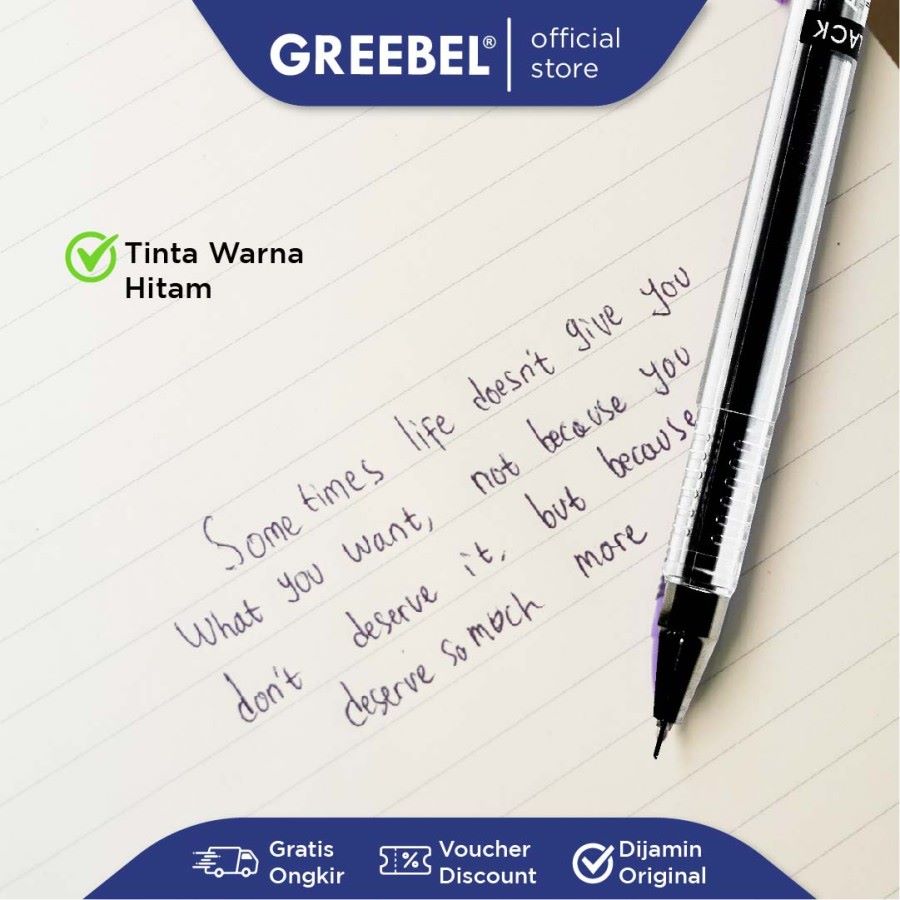 GREEBEL® official
store
BLACK
Tinta Warna
Hitam
Some times life doesn't give you
What you want, not because you
don't deserve it, but because
deserve so much more
Gratis
Ongkir
Voucher
Discount
Dijamin
Original